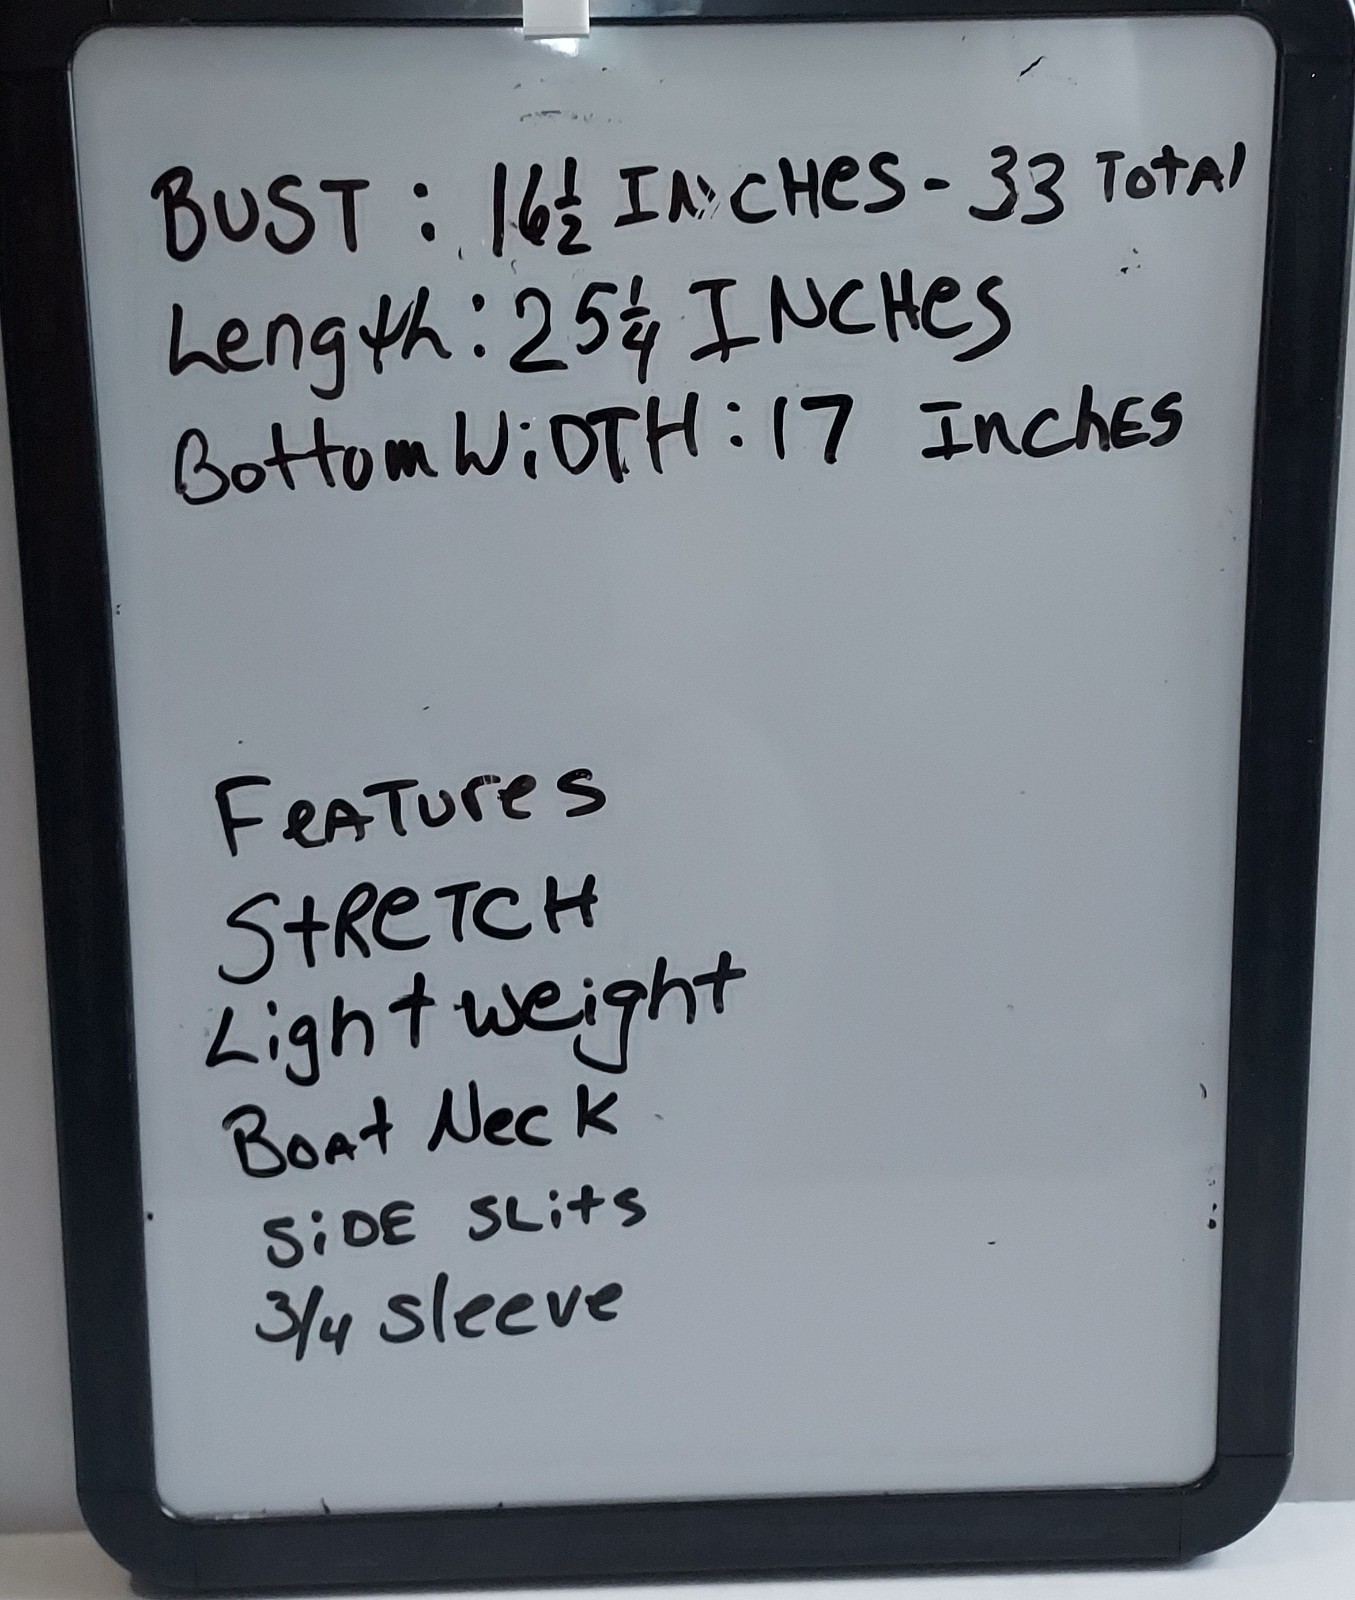 BUST : 16½ INCHeS - 33 TotAl
Length : 25¼ INCHeS
Bottom WiDTH : 17 InchES
FeATures
StReTCH
Lightweight
BoAt NecK
SiDE SLitS
3/4 Sleeve